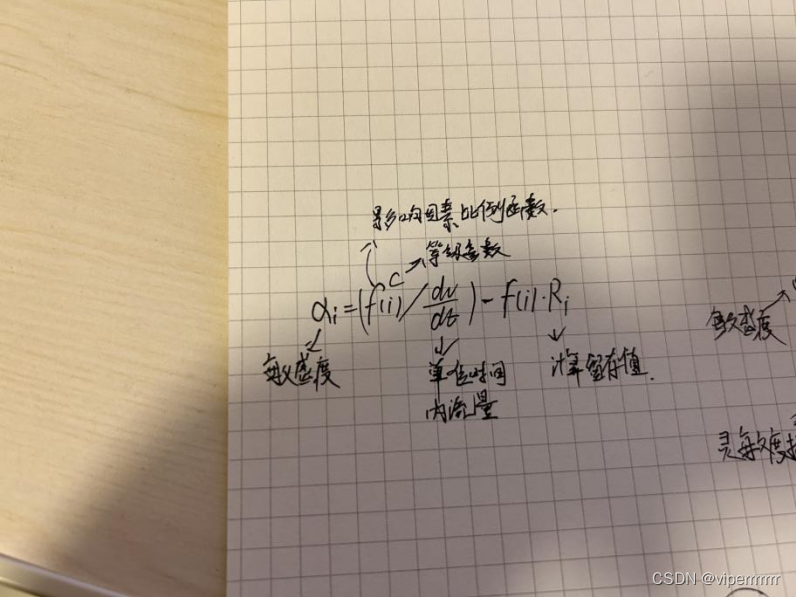 影响因素比例函数.
等级参数
αi = (f(i)^C / dv/dt) - f(i)·Ri
敏感度
单位时间
内流量
计算留存值.
敏感度
灵敏度
CSDN @viperrrrrrr